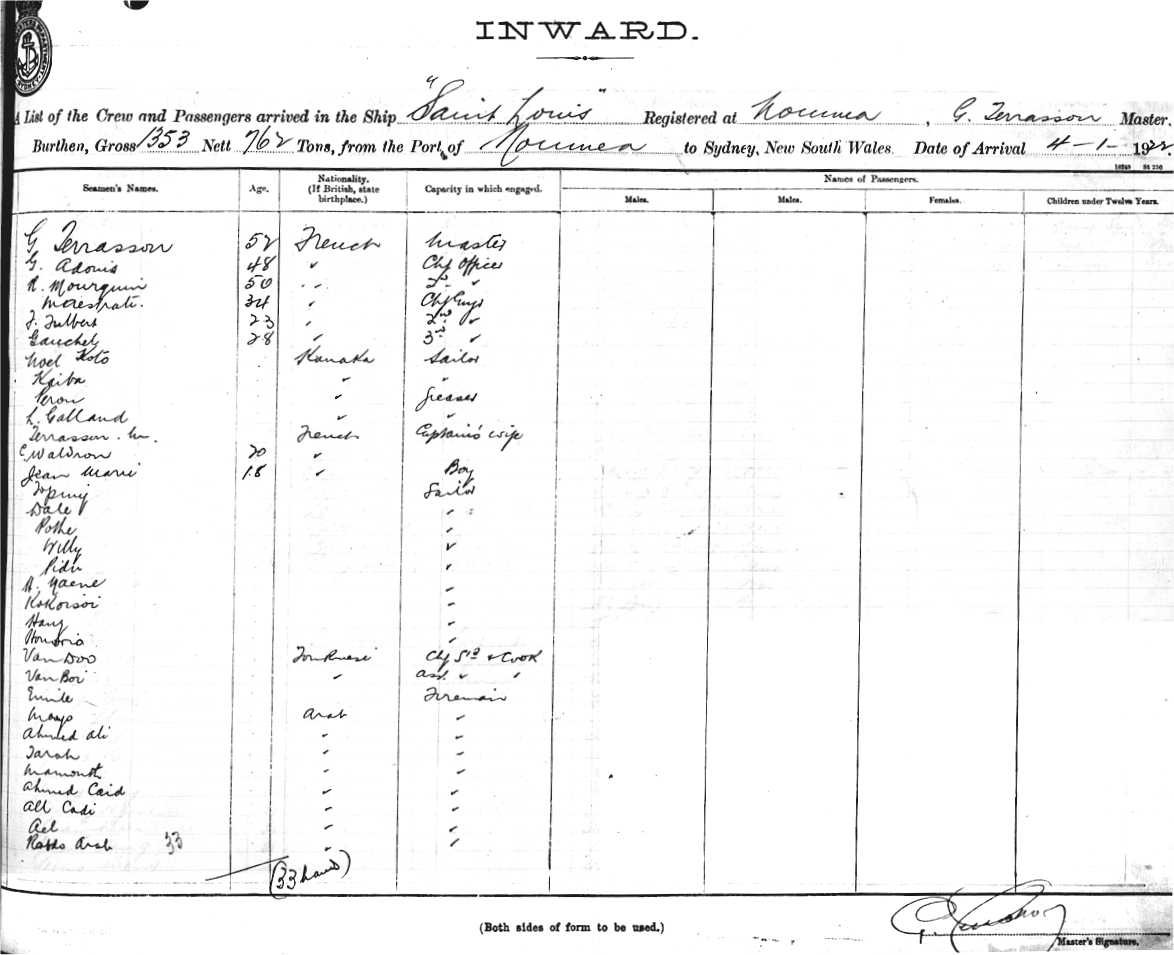 INWARD.
A List of the Crew and Passengers arrived in the Ship "Saint Louis" Registered at Noumea, G. Terrasson Master,
Burthen, Gross 1353 Nett 762 Tons, from the Port of Noumea to Sydney, New South Wales. Date of Arrival 4-1-1922
Seamen's Names. Age. Nationality. (If British, state birthplace.) Capacity in which engaged. Names of Passengers.
Males. Males. Females. Children under Twelve Years.
G Terrasson 52 French Master
G. Adonis 48 " Chf Officer
R. Mourguin 50 " 2nd "
Maestrati. 34 " Chf Engr
J. Fulbert 23 " 2nd "
Gauchel 28 " 3rd "
Noel Koto Kanaka Sailor
Kaiba " "
Peron " Greaser
L. Galland " "
Terrasson. M. French Captain's wife
C Waldron 20 "
Jean Marie 18 " Boy
Sailor
Dale "
Pothe "
Willy "
Pidu "
R. Naene "
Kokorsoi "
Hang "
"
Van Doo Tonkinese Chf Std & Cook
Van Boi " Asst " "
Emile Fireman
Arab "
Ahmed Ali " "
Tarah " "
Mamouth " "
Ahmed Caid " "
All Cadi " "
Ael " "
Arab 33 " "
(33 hands)
(Both sides of form to be used.)
Master's Signature.